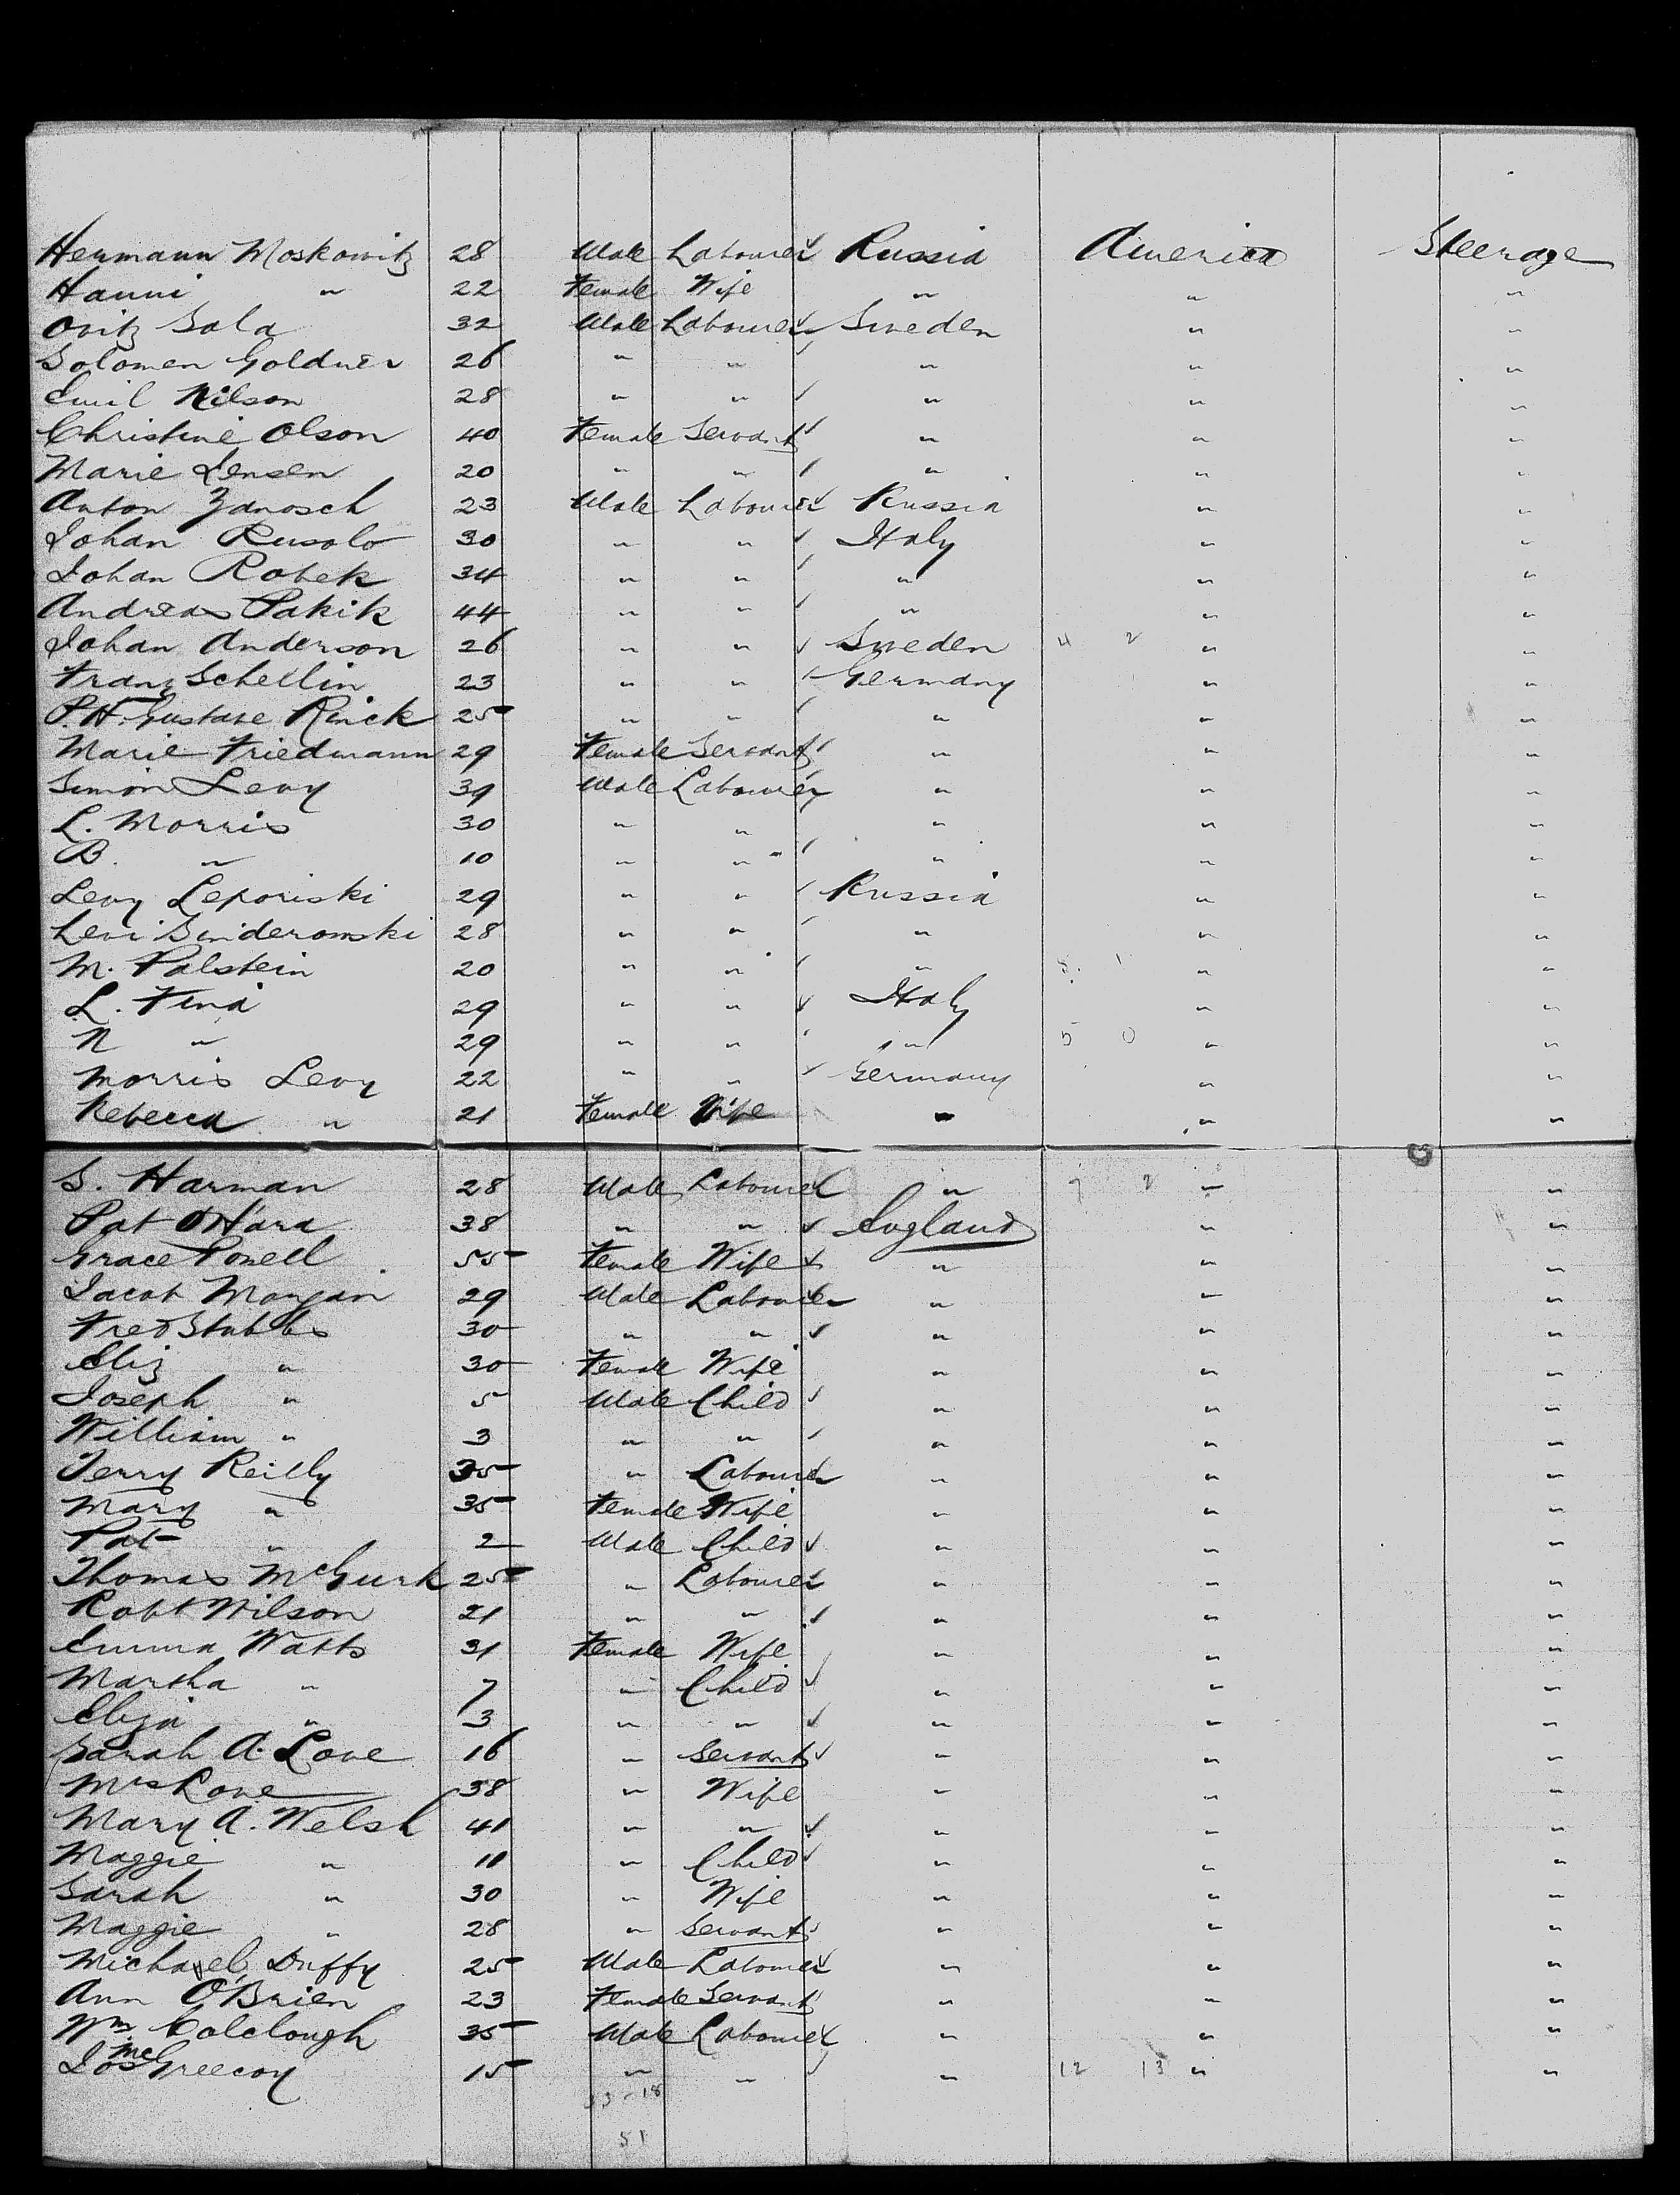 Hermann Moskowitz 28 Male Labourer Russia America Steerage
Hanni " 22 Female Wife " " "
Ovitz Sala 32 Male Labourer Sweden " "
Solomen Goldner 26 " " " " "
Emil Nilson 28 " " " " "
Christine Olson 40 Female Servant " " "
Marie Jensen 20 " " " " "
Anton Zanosch 23 Male Labourer Russia " "
Johan Rusolo 30 " " Italy " "
Johan Robek 34 " " " " "
Andreas Pakik 44 " " " " "
Johan Anderson 26 " " Sweden 4 2 " "
Franz Schellin 23 " " Germany " "
P.H. Gustave Rinck 25 " " " " "
Marie Friedmann 29 Female Servant " " "
Simon Levy 39 Male Labourer " " "
L. Morris 30 " " " " "
B. " 10 " " " " "
Levy Leporiski 29 " " Russia " "
Levi Sinderomski 28 " " " " "
M. Palstein 20 " " " " "
L. Fina 29 " " Italy " "
N " 29 " " " 5 0 " "
Morris Levy 22 " " Germany " "
Rebecca " 21 Female Wife " " "
S. Harman 28 Male Labourer " 7 2 " "
Pat O'Hara 38 " " England " "
Grace Powell 55 Female Wife " " "
Jacob Morgan 29 Male Labourer " " "
Fred Stubbs 30 " " " " "
Eliz " 30 Female Wife " " "
Joseph " 5 Male Child " " "
William " 3 " " " " "
Terry Reilly 35 " Labourer " " "
Mary " 35 Female Wife " " "
Pat " 2 Male Child " " "
Thomas McGurk 25 " Labourer " " "
Robt Wilson 21 " " " " "
Emma Watts 31 Female Wife " " "
Martha " 7 " Child " " "
Eliza " 3 " " " " "
Sarah A. Love 16 " Servant " " "
Mrs Love 38 " Wife " " "
Mary A. Welsh 41 " " " " "
Maggie " 11 " Child " " "
Sarah " 30 " Wife " " "
Maggie " 28 " Servant " " "
Michael Duffy 25 Male Labourer " " "
Ann O'Brien 23 Female Servant " " "
Wm. Colclough 35 Male Labourer " " "
Jos McGreecoy 15 " " " 12 13 " "
33 - 18
51